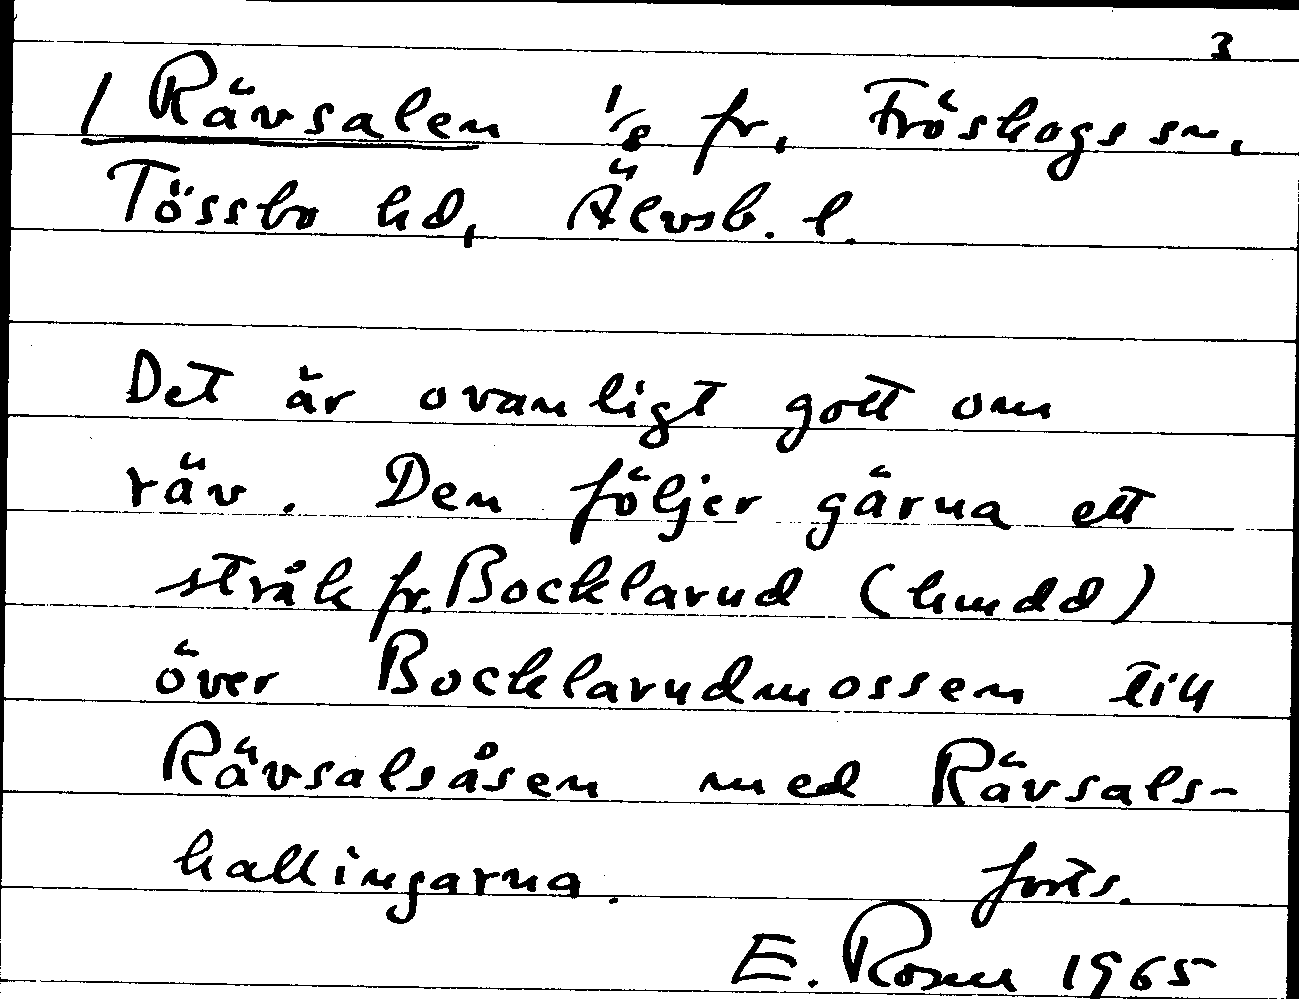 3
/ Rävsalen 1/8 fr. Fröskogs sn,
Tössbo hd, Älvsb. l.
Det är ovanligt gott om
räv. Den följer gärna ett
stråk fr. Bocklarud (hmdd)
över Bocklarudmossen till
Rävsalsåsen med Rävsals-
hallingarna. forts.
E. Rosen 1965